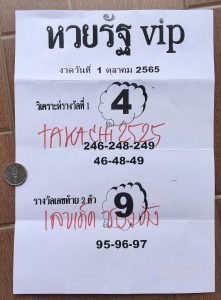 หวยรัฐ vip
งวดวันที่ 1 ตุลาคม 2565
วิเคราะห์รางวัลที่ 1
4
TAKACHI2525
246-248-249
46-48-49
รางวัลเลขท้าย 2 ตัว
9
เลขเด็ด
95-96-97